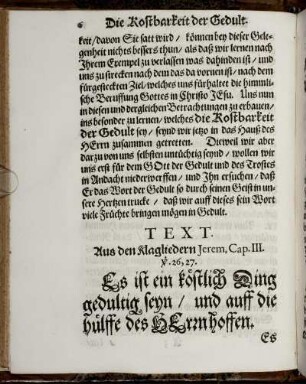 6 Die Kostbarkeit der Gedult.
keit/ davon Sie satt wird / können bey dieser Gele-
genheit nichts bessers thun/ als daß wir lernen nach
Ihrem Exempel zu verlassen was dahinden ist / und
uns zu strecken nach dem das da vornen ist/ nach dem
fürgesteckten Ziel/ welches uns fürhaltet die himmli-
sche Beruffung Gottes in Christo JEsu. Uns nun
in diesen und dergleichen Betrachtungen zu erbauen/
ins besonder zu lernen/ welches die Kostbarkeit
der Gedult sey / seynd wir jetzo in das Hauß des
HErrn zusammen getretten. Dieweil wir aber
dar zu von uns selbsten untüchtig seynd / wollen wir
uns erst für dem GOtt der Gedult und des Trostes
in Andacht niederwerffen / und Ihn ersuchen / daß
Er das Wort der Gedult so durch seinen Geist in un-
sere Hertzen trucke / daß wir auff dieses sein Wort
viele Früchte bringen mögen in Gedult.
TEXT.
Aus den Klagliedern Jerem, Cap. III.
℣. 26, 27.
Es ist ein köstlich Ding
gedultig seyn / und auff die
hülffe des HErrn hoffen.
Es